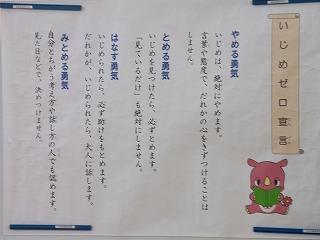 いじめゼロ宣言
やめる勇気
いじめは、絶対にやめます。
言葉や態度で、だれかの心をきずつけることは
しません。
とめる勇気
いじめを見つけたら、必ずとめます。
「見ているだけ」も絶対にしません。
はなす勇気
いじめられたら、必ず助けをもとめます。
だれかが、いじめられたら、大人に話します。
みとめる勇気
自分とちがう考え方や話し方の人でも認めます。
見た目などで、決めつけません。